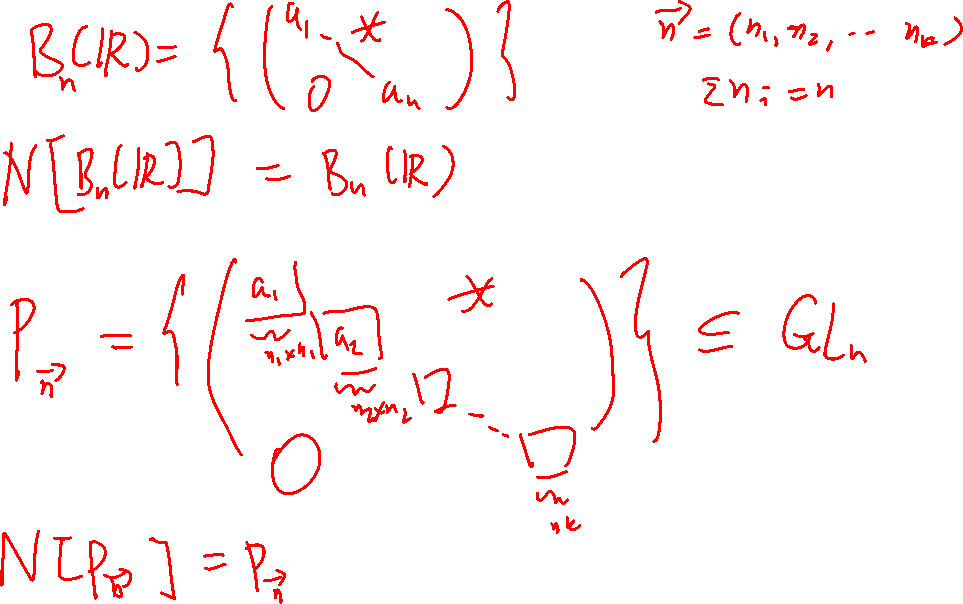 B_n(ℝ) = { ( a_1 ⋱ * 0 a_n ) }
n⃗ = (n_1, n_2, ⋯ n_k)
Σ n_i = n
N[B_n(ℝ)] = B_n(ℝ)
P_n⃗ = { ( a_1 n_1×n_1 a_2 n_2×n_2 * ⋱ 0 n_k ) } ≤ GL_n
N[P_n⃗] = P_n⃗